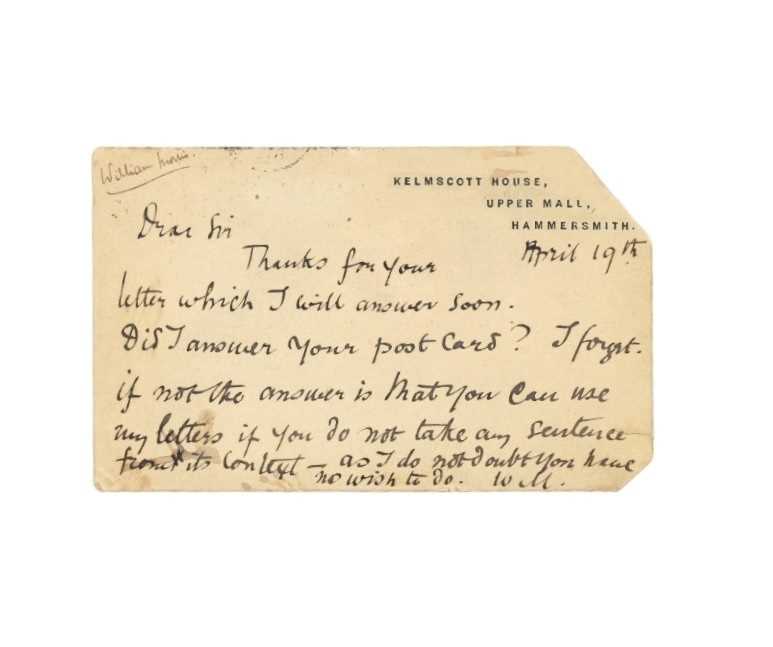 William Morris.
KELMSCOTT HOUSE,
UPPER MALL,
HAMMERSMITH.
April 19th
Dear Sir
Thanks for your
letter which I will answer soon.
Did I answer your post card? I forget.
if not the answer is that you can use
my letters if you do not take any sentence
from its context — as I do not doubt you have
no wish to do. W M.